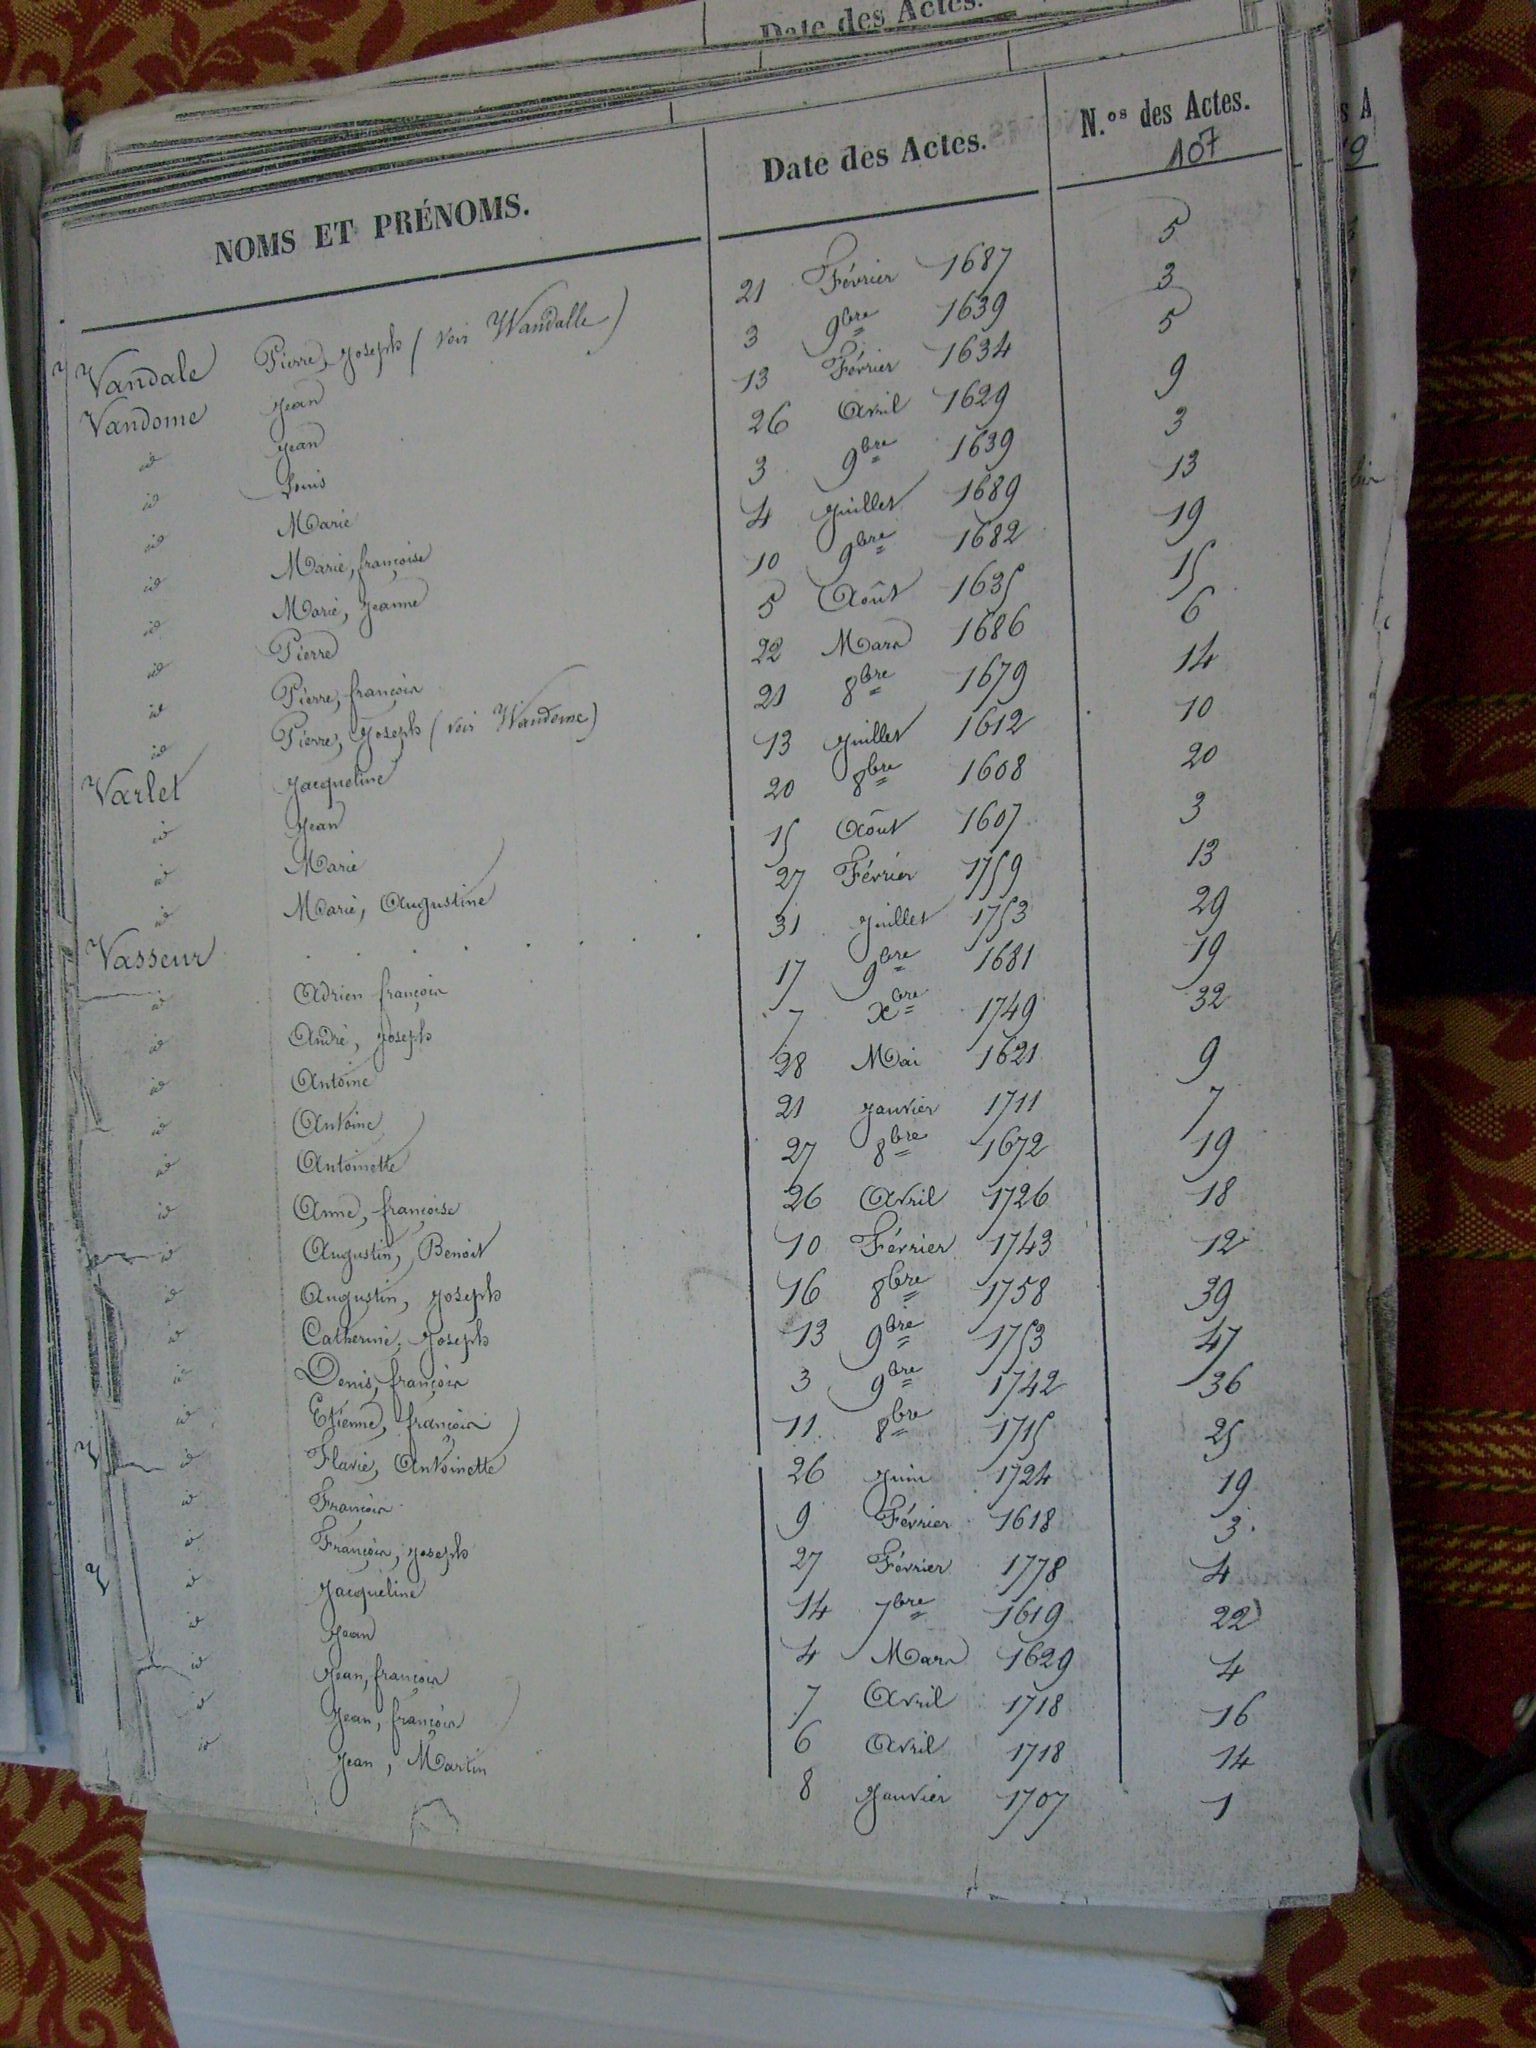 Date des Actes.
NOMS ET PRÉNOMS. Date des Actes. N.os des Actes.
107
Vandale Pierre, Joseph (voir Wandalle) 21 Février 1687 5
Vandome Jean 3 9bre 1639 3
id Jean 13 Février 1634 5
id Louis 26 Avril 1629 9
id Marie 3 9bre 1639 3
id Marie, françoise 4 Juillet 1689 13
id Marie, Jeanne 10 9bre 1682 19
id Pierre 5 Août 1635 15
id Pierre, françois 22 Mars 1686 6
id Pierre, Joseph (voir Wandome) 21 8bre 1679 14
Varlet Jacqueline 13 Juillet 1612 10
id Jean 20 8bre 1608 20
id Marie 15 Août 1607 3
id Marie, Augustine 27 Février 1759 13
Vasseur . . . . . . 31 Juillet 1753 29
id Adrien françois 17 9bre 1681 19
id André, Joseph 7 xbre 1749 32
id Antoine 28 Mai 1621 9
id Antoine 21 Janvier 1711 7
id Antoinette 27 8bre 1672 19
id Anne, françoise 26 Avril 1726 18
id Augustin, Benoit 10 Février 1743 12
id Augustin, Joseph 16 8bre 1758 39
id Catherine, Joseph 13 9bre 1753 47
id Denis, françois 3 9bre 1742 36
id Etienne, françois 11 8bre 1715 25
id Flavie, Antoinette 26 Juin 1724 19
id François 9 Février 1618 3
id François, Joseph 27 Février 1778 4
id Jacqueline 14 7bre 1619 22
id Jean 4 Mars 1629 4
id Jean, françois 7 Avril 1718 16
id Jean, françois 6 Avril 1718 14
id Jean, Martin 8 Janvier 1707 1